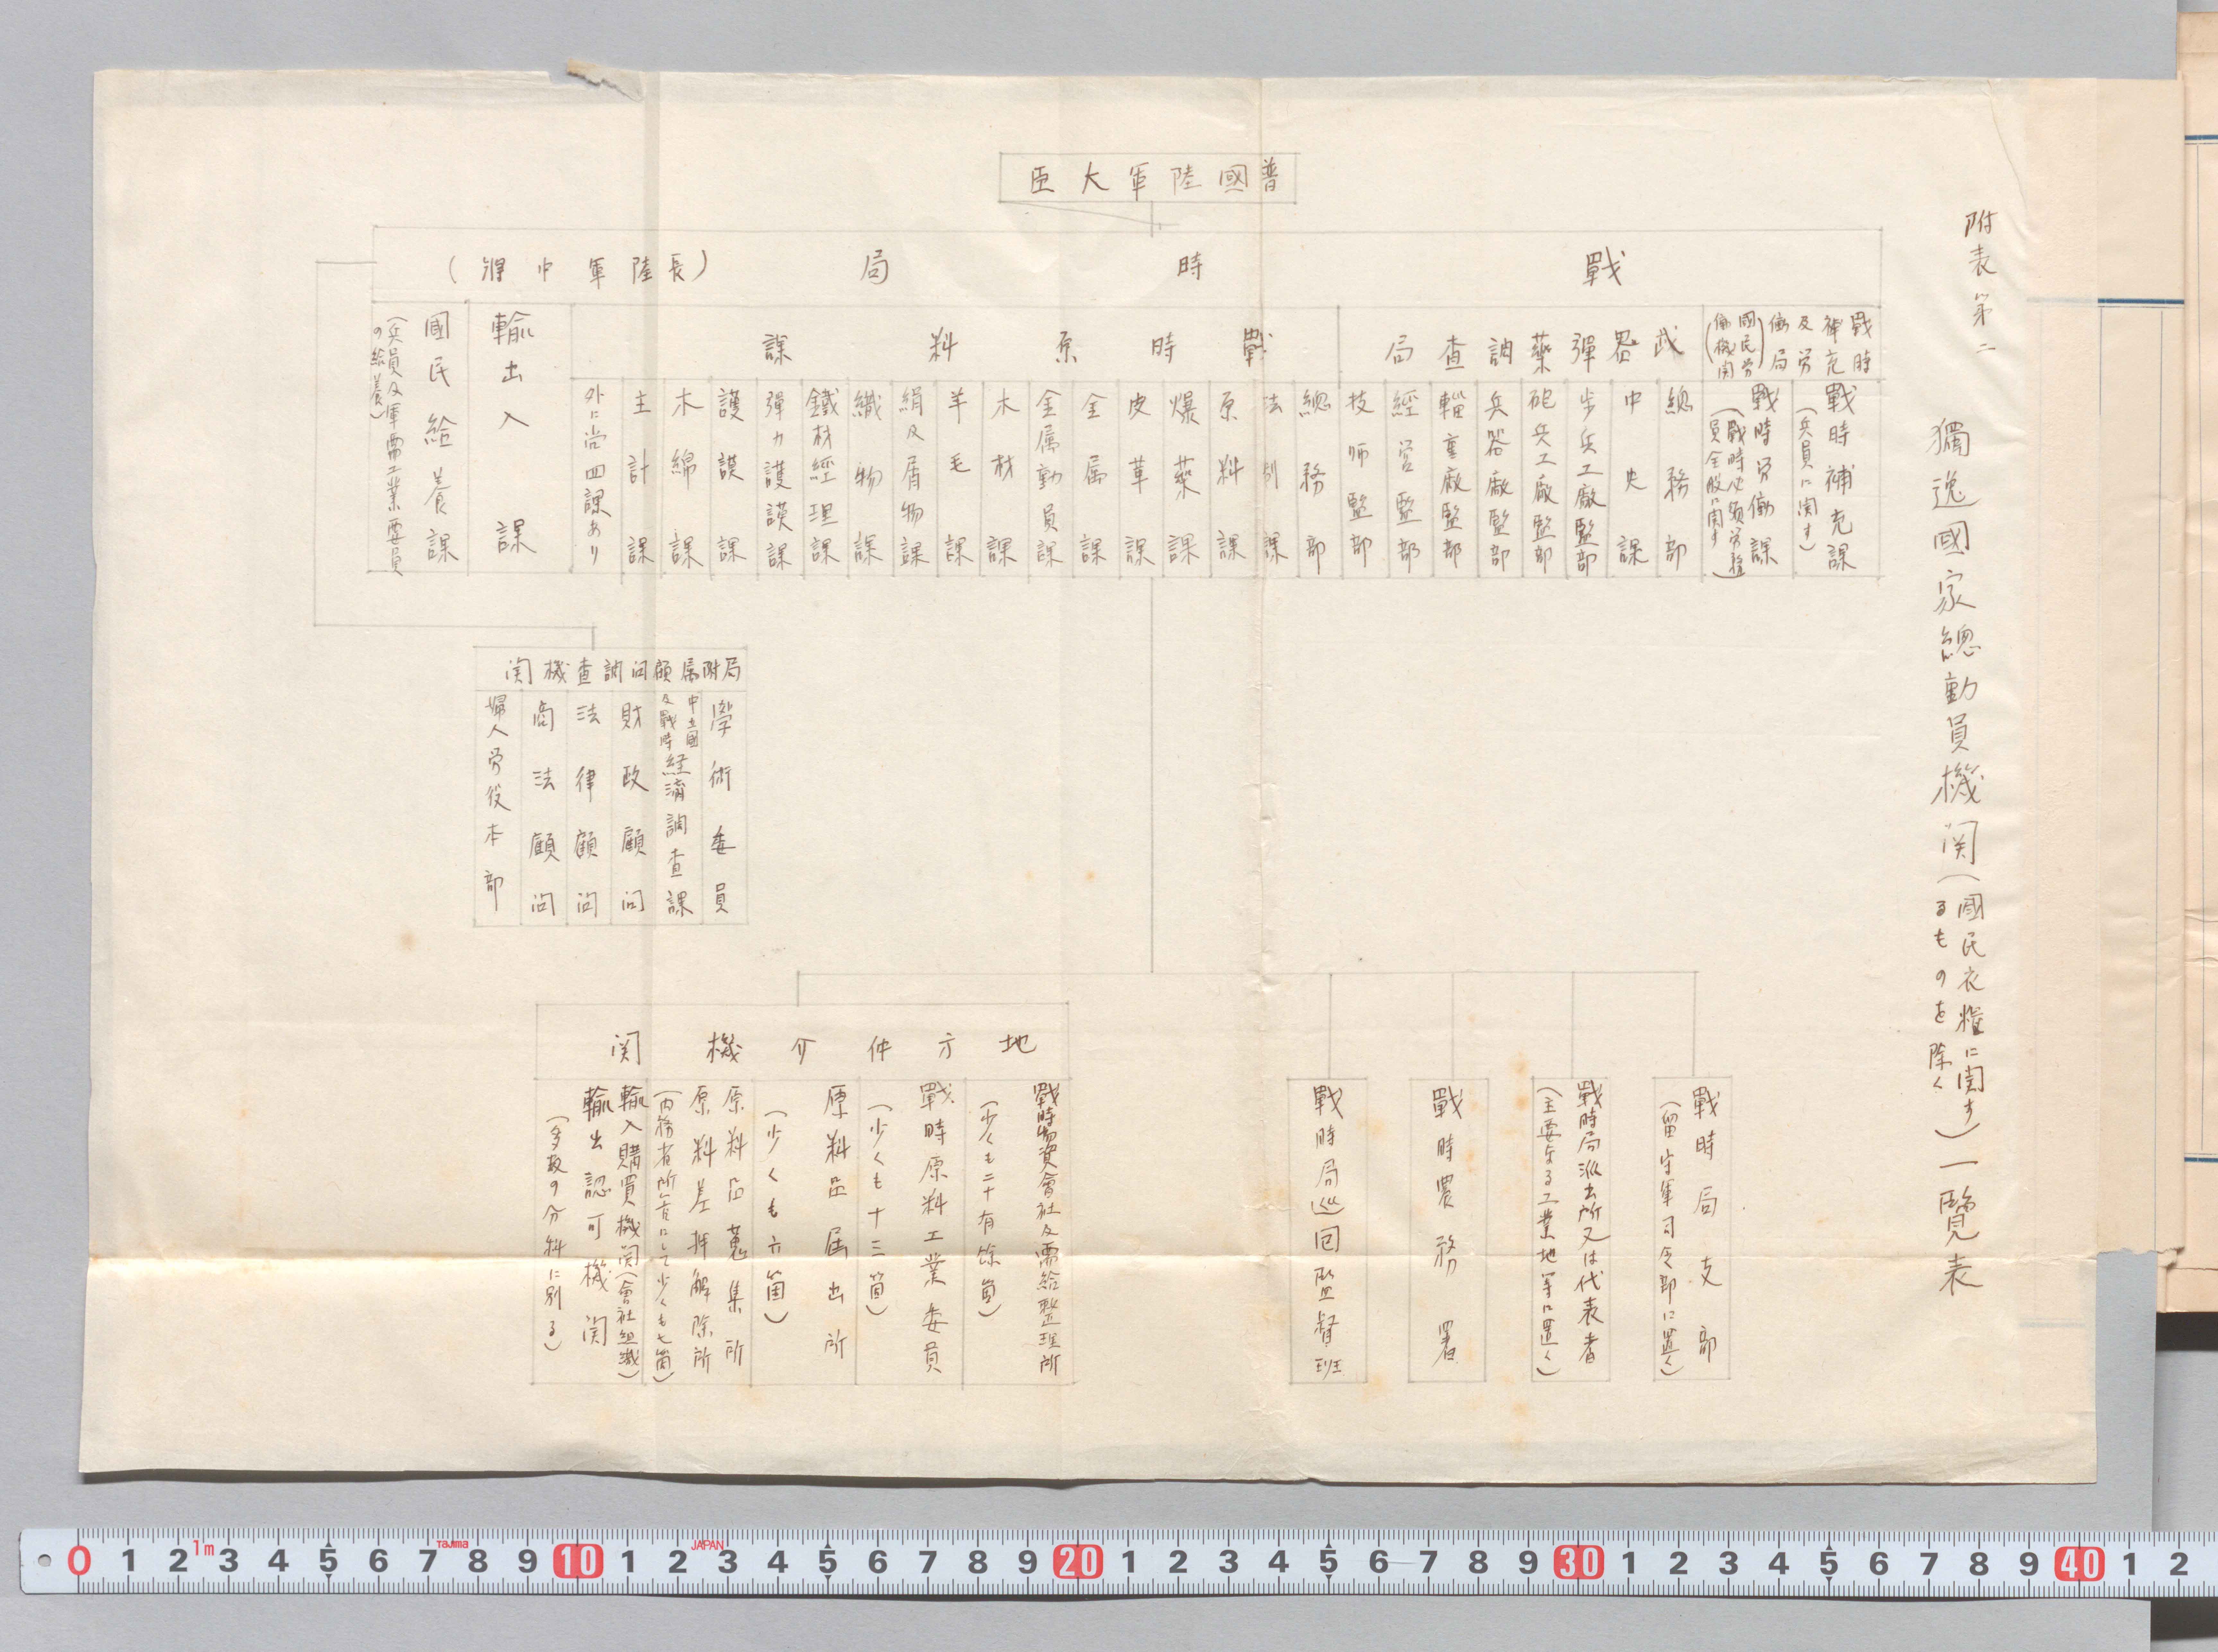 附表第二
獨逸國家總動員機関(國民衣糧に関するものを除く)一覽表
普國陸軍大臣
戰時局
(長陸軍中將)
戰時補充及労働局
(國民労働機関)
戰時補充課
(兵員に関す)
戰時労働課
(戰時必須労務員全般に関す)
武器彈藥調查局
總務部
中央課
步兵工廠監部
砲兵工廠監部
兵器廠監部
輜重廠監部
經営監部
技師監部
戰時原料課
總務部
法制課
原料課
爆藥課
皮革課
金属課
金属動員課
木材課
羊毛課
絹及屑物課
織物課
鐵材經理課
彈力護謨課
護謨課
木綿課
主計課
外に尚四課あり
輸出入課
國民給養課
(兵員及軍需工業要員の給養)
局附属顧问調查機関
學術委員
中立國及戰時経濟調查課
財政顧问
法律顧问
商法顧问
婦人労役本部
戰時局支部
(留守軍司令部に置く)
戰時局派出所又は代表者
(主要なる工業地等に置く)
戰時農務署
戰時局巡回監督班
地方仲介機関
戰時物資會社及需給整理所
(少くも二十有餘箇)
戰時原料工業委員
(少くも十三箇)
原料品届出所
(少くも六箇)
原料品蒐集所
原料差押解除所
(内務省所管にして少くも七箇)
輸入購買機関(會社組織)
輸出認可機関
(多数の分科に別る)
0 1 2 3 4 5 6 7 8 9 10 1 2 3 4 5 6 7 8 9 20 1 2 3 4 5 6 7 8 9 30 1 2 3 4 5 6 7 8 9 40 1 2
1m
Tajima
JAPAN